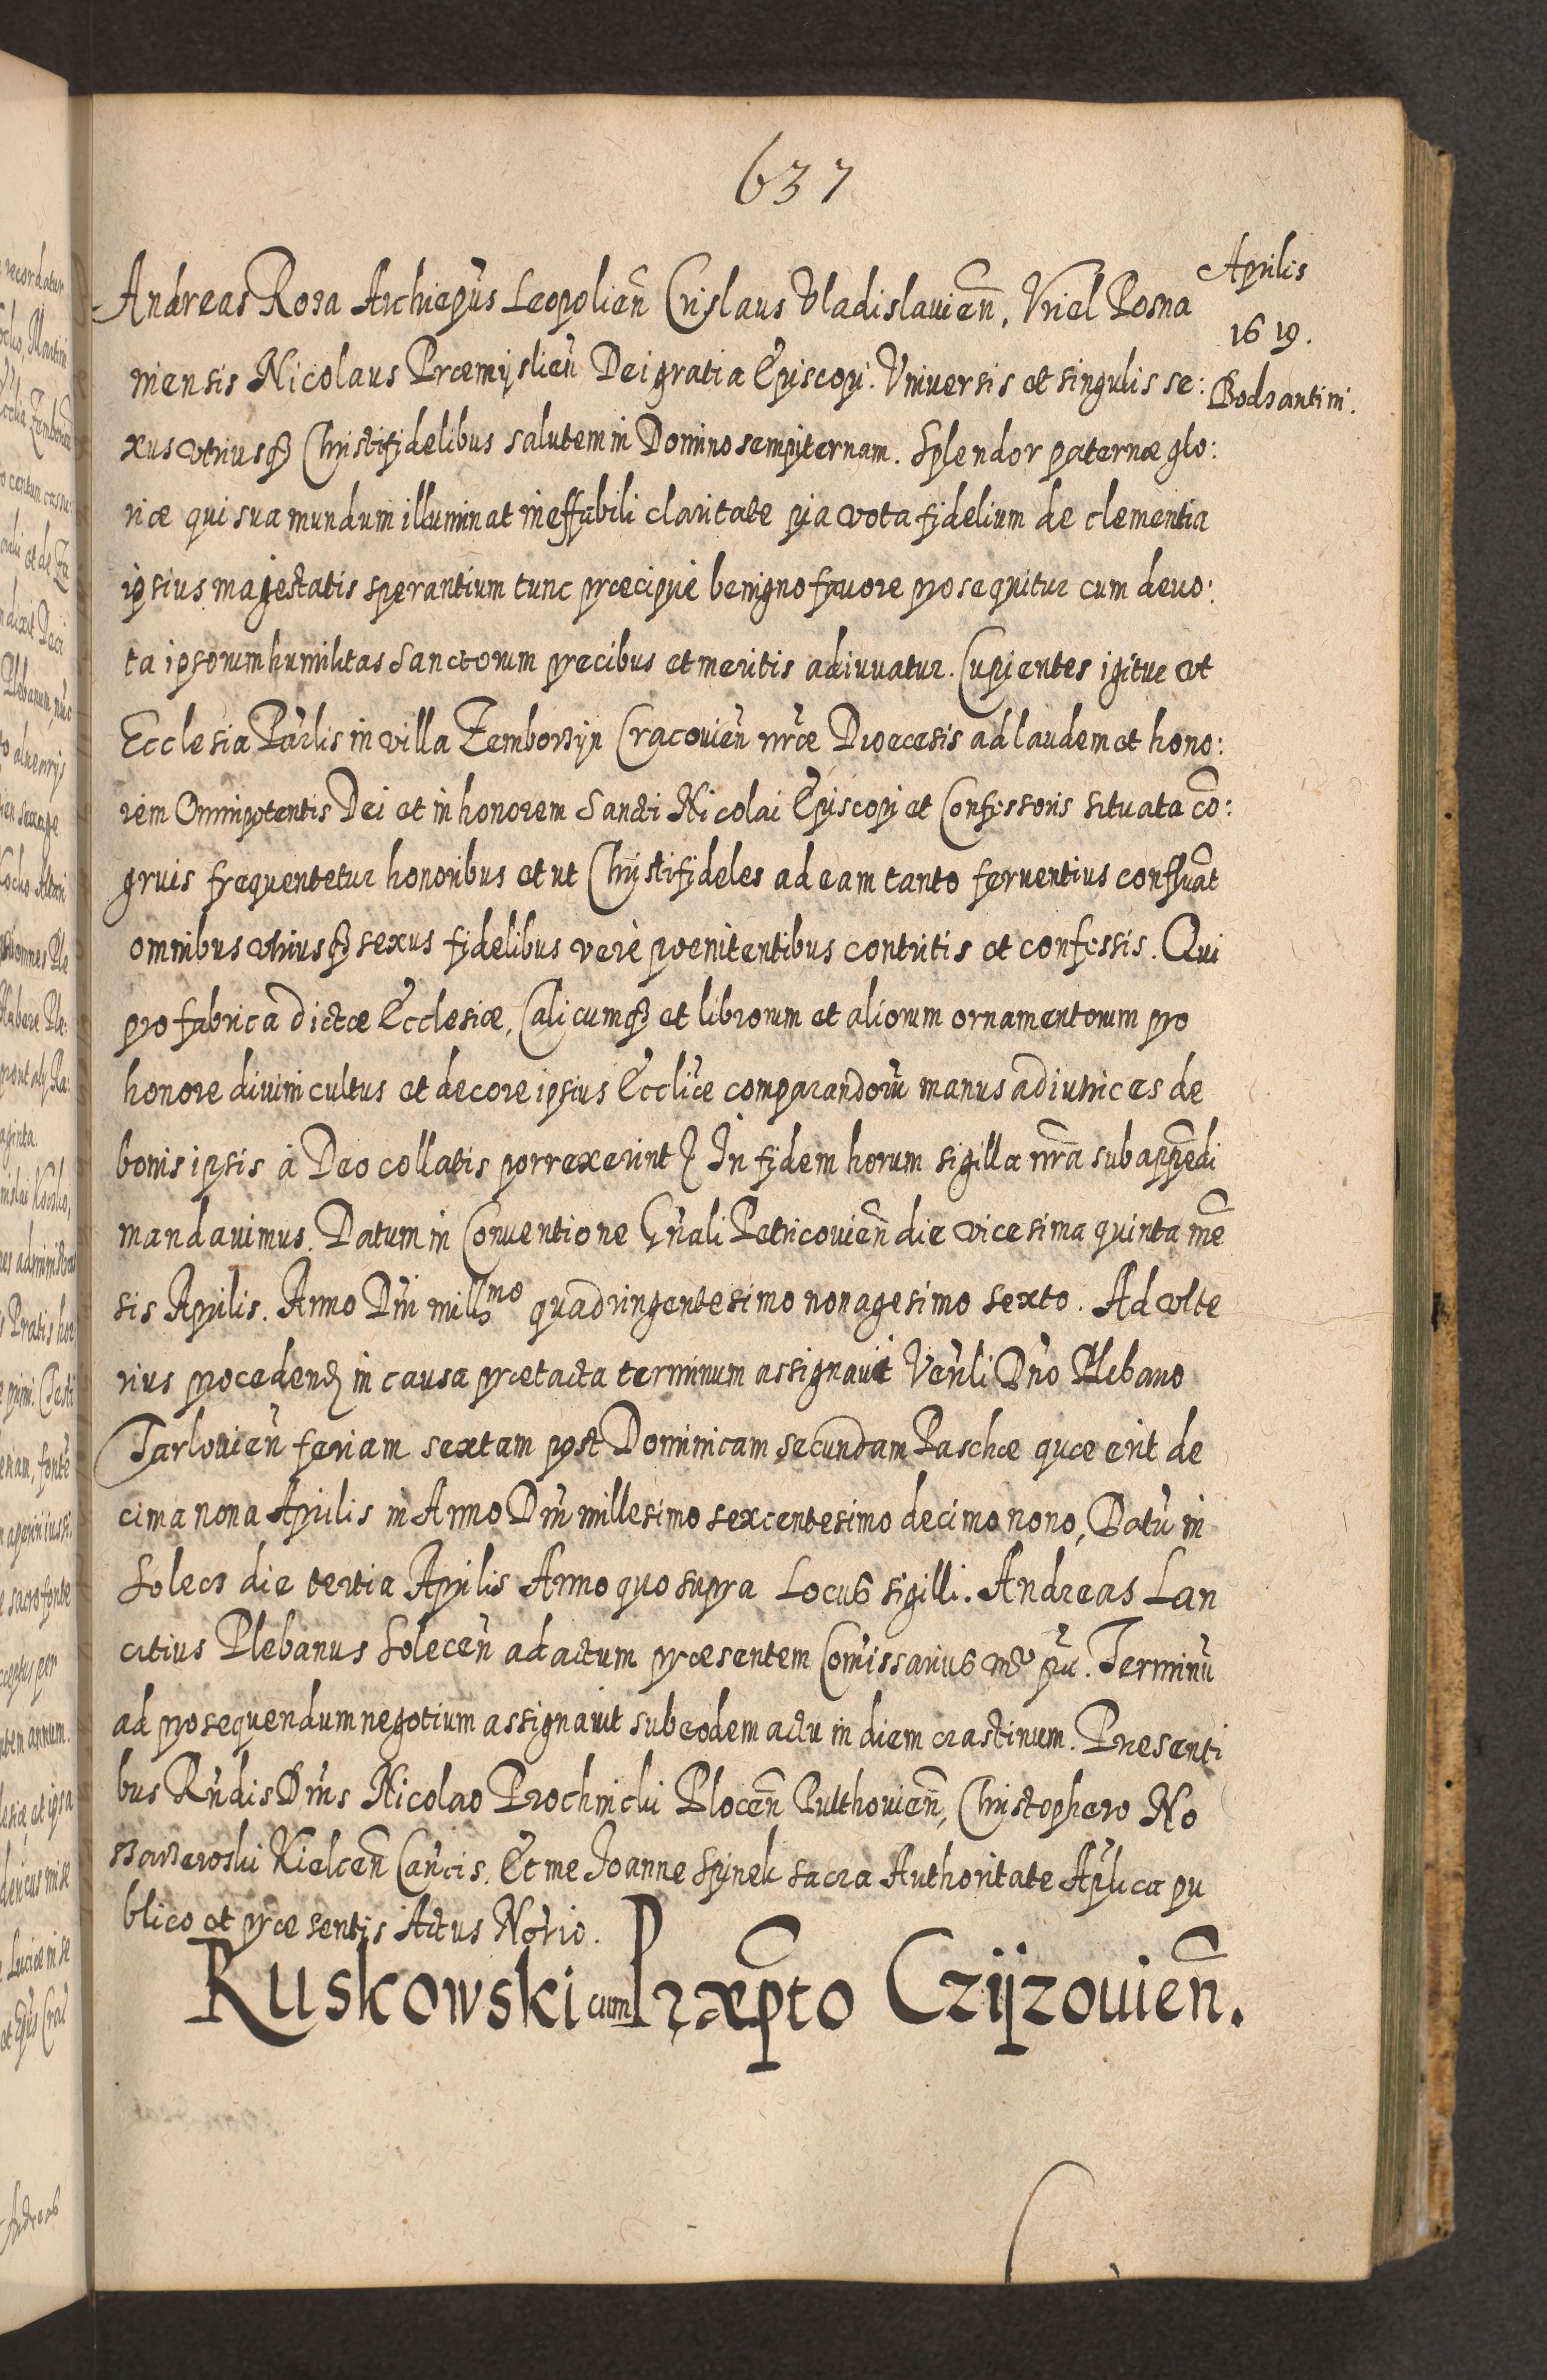 637
Aprilis
1619.
Bodzantini.
Andreas Roza Archiepũs Leopolien̄ Crislaus Vladislauien̄, Vriel Posna
niensis Nicolaus Præmÿslien̄ Dei gratia Episcopi. Vniuersis et singulis se:
xus vtriusq3 Christifidelibus salutem in Domino sempiternam. Splendor paternæ glo:
riæ qui sua mundum illuminat ineffabili claritate pia vota fidelium de clementia
ipsius majestatis sperantium tunc præcipue benigno favore prosequitur cum deuo:
ta ipsorum humilitas Sanctorum precibus et meritis adiuuatur. Cupientes igitur vt
Ecclesia Parlis in villa Zemborzÿn Cracouien̄ nr̄æ Diœcesis ad laudem et hono:
rem Omnipotentis Dei et in honorem Sancti Nicolai Episcopi et Confessoris situata cō:
gruis frequentetur honoribus et ut Christifideles ad eam tanto feruentius confluāt
omnibus vtriusq3 sexus fidelibus verè pœnitentibus contritis et confessis. Qui
pro fabrica dictæ Ecclesiæ, Calicumq3 et librorum et aliorum ornamentorum pro
honore diuini cultus et decore ipsius Eccliæ comparandorū manus adiutrices de
bonis ipsis à Deo collatis porrexerint In fidem horum sigilla nr̄a subappēdi
mandauimus. Datum in Conuentione Gn̄ali Petricouien̄ die vicesima quinta mē
sis Aprilis. Anno Dn̄i mill̄mo quadringentesimo nonagesimo sexto. Ad vlte
rius procedend in causa prætacta terminum assignauit Ven̄li Dn̄o Plebano
Tarlouien̄ feriam sextam post Dominicam secundam Paschæ quæ erit de
cima nona Aprilis in Anno Dn̄i millesimo sexcentesimo decimo nono, Datū in
Solecz die tertia Aprilis Anno quo supra Locus sigilli. Andreas Lan
citius Plebanus Solecen̄ ad actum præsentem Com̄issarius mp̄ Terminū
ad prosequendum negotium assignauit sub eodem actu in diem crastinum. Presenti
bus Rn̄dis Dn̄is Nicolao Prochnicki Plocen̄ Pulthouien̄, Christophero No
Kielcen̄ Can̄cis. Et me Joanne Spinek Sacra Authoritate Ap̄lica pu
blico et præsentis Actus Not̄io.
Ruskowski cum Præp̄to Czijzouien̄.